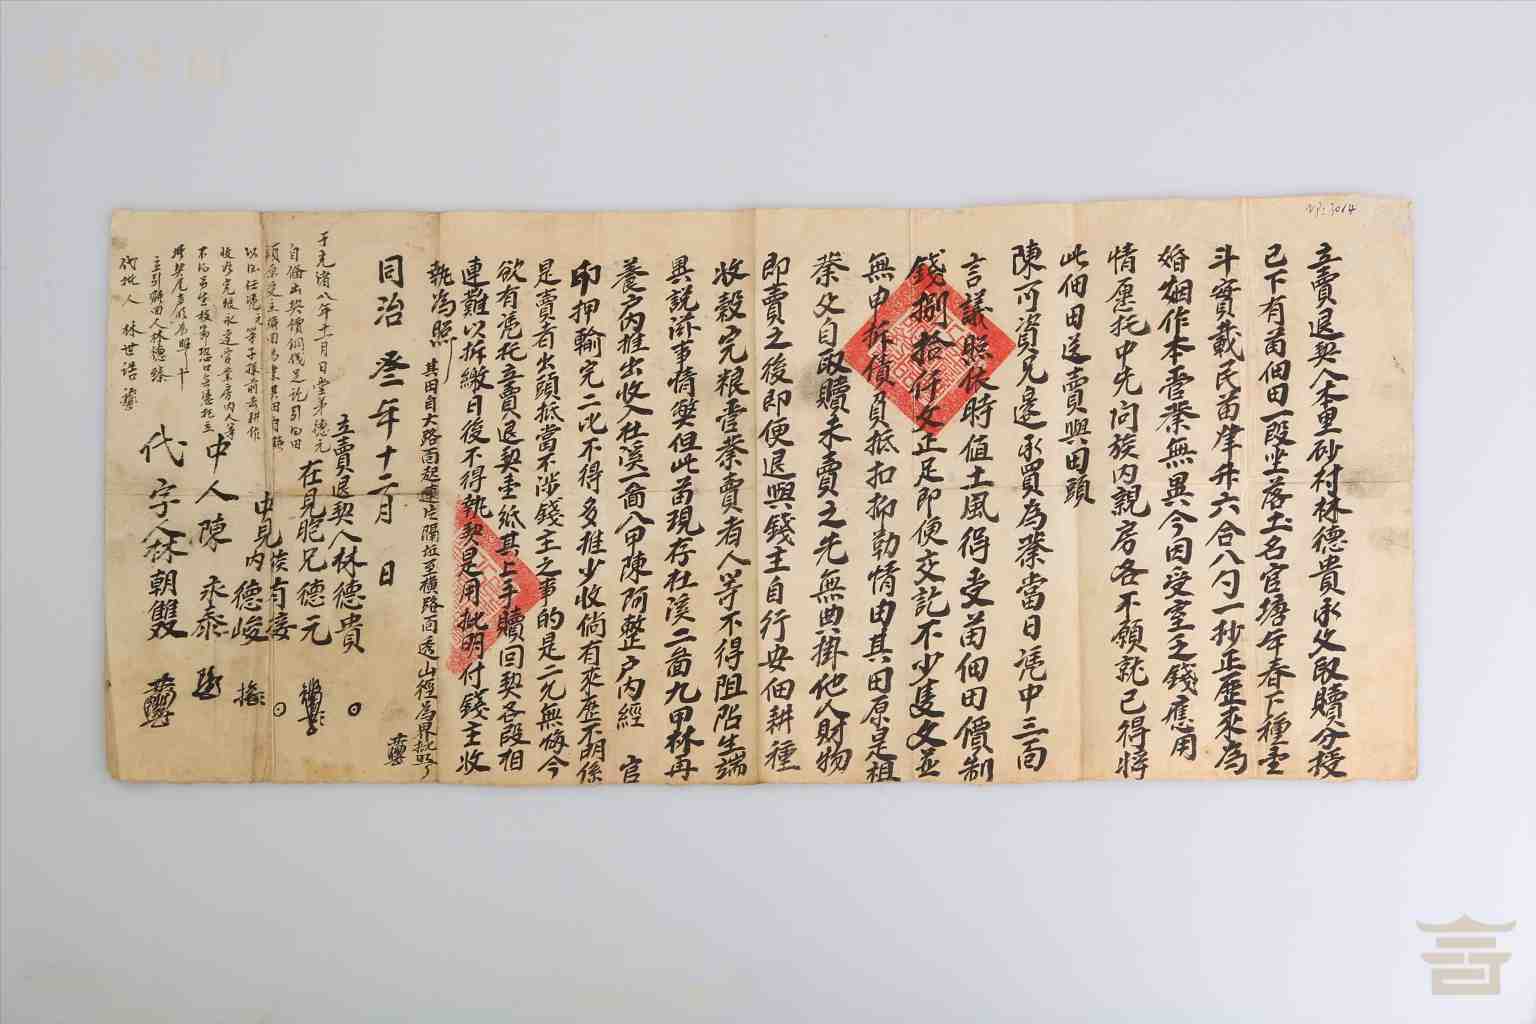 立賣退契人本里砂村林德貴承父取贖分授
己下有苗佃田一段坐落土名官塘年春下種壹
斗實載民苗肆升六合八勺一抄正歷來為
婚姻作本管業無異今因受室乏錢應用
情愿托中先問族內親房各不願就已得將
此佃田送賣與田頭
陳可資兄邊承買為業當日憑中三面
言議照依時值土風得受苗佃田價制
錢捌拾仟文正足即便交訖不少隻文並
無串拆債負抵扣抑勒情由其田原是祖
業父自取贖未賣之先無典掛他人財物
即賣之後即便退與錢主自行安佃耕種
收穀完粮管業賣者人等不得阻陷生端
異說滋事情弊但此苗現存杜溪二啚九甲林再
養户內推出收入杜溪一啚八甲陳阿整户內經 官
印押輸完二比不得多推少收倘有來歷不明係
是賣者出頭抵當不涉錢主之事的是二允無悔今
欲有憑托立賣退契壹紙其上手贖回契各段相
連難以拆繳日後不得執契是用批明付錢主收
執為照
其田自大路面起連片隔坵至橫路面透山徑為界批照了
同治 叁年十二月 日
立賣退契人林德貴
在見胞兄德元
中見 族有
內 德峻
中人陳永泰
代字人林朝雙
于光緒八年十一月日堂弟德元
自備出契價銅錢足訖引向田
以后任憑元等子孫前去耕作
收谷完粮永遠管業房內人等
主引贖田人林德
代批人 林世浩
№:3064